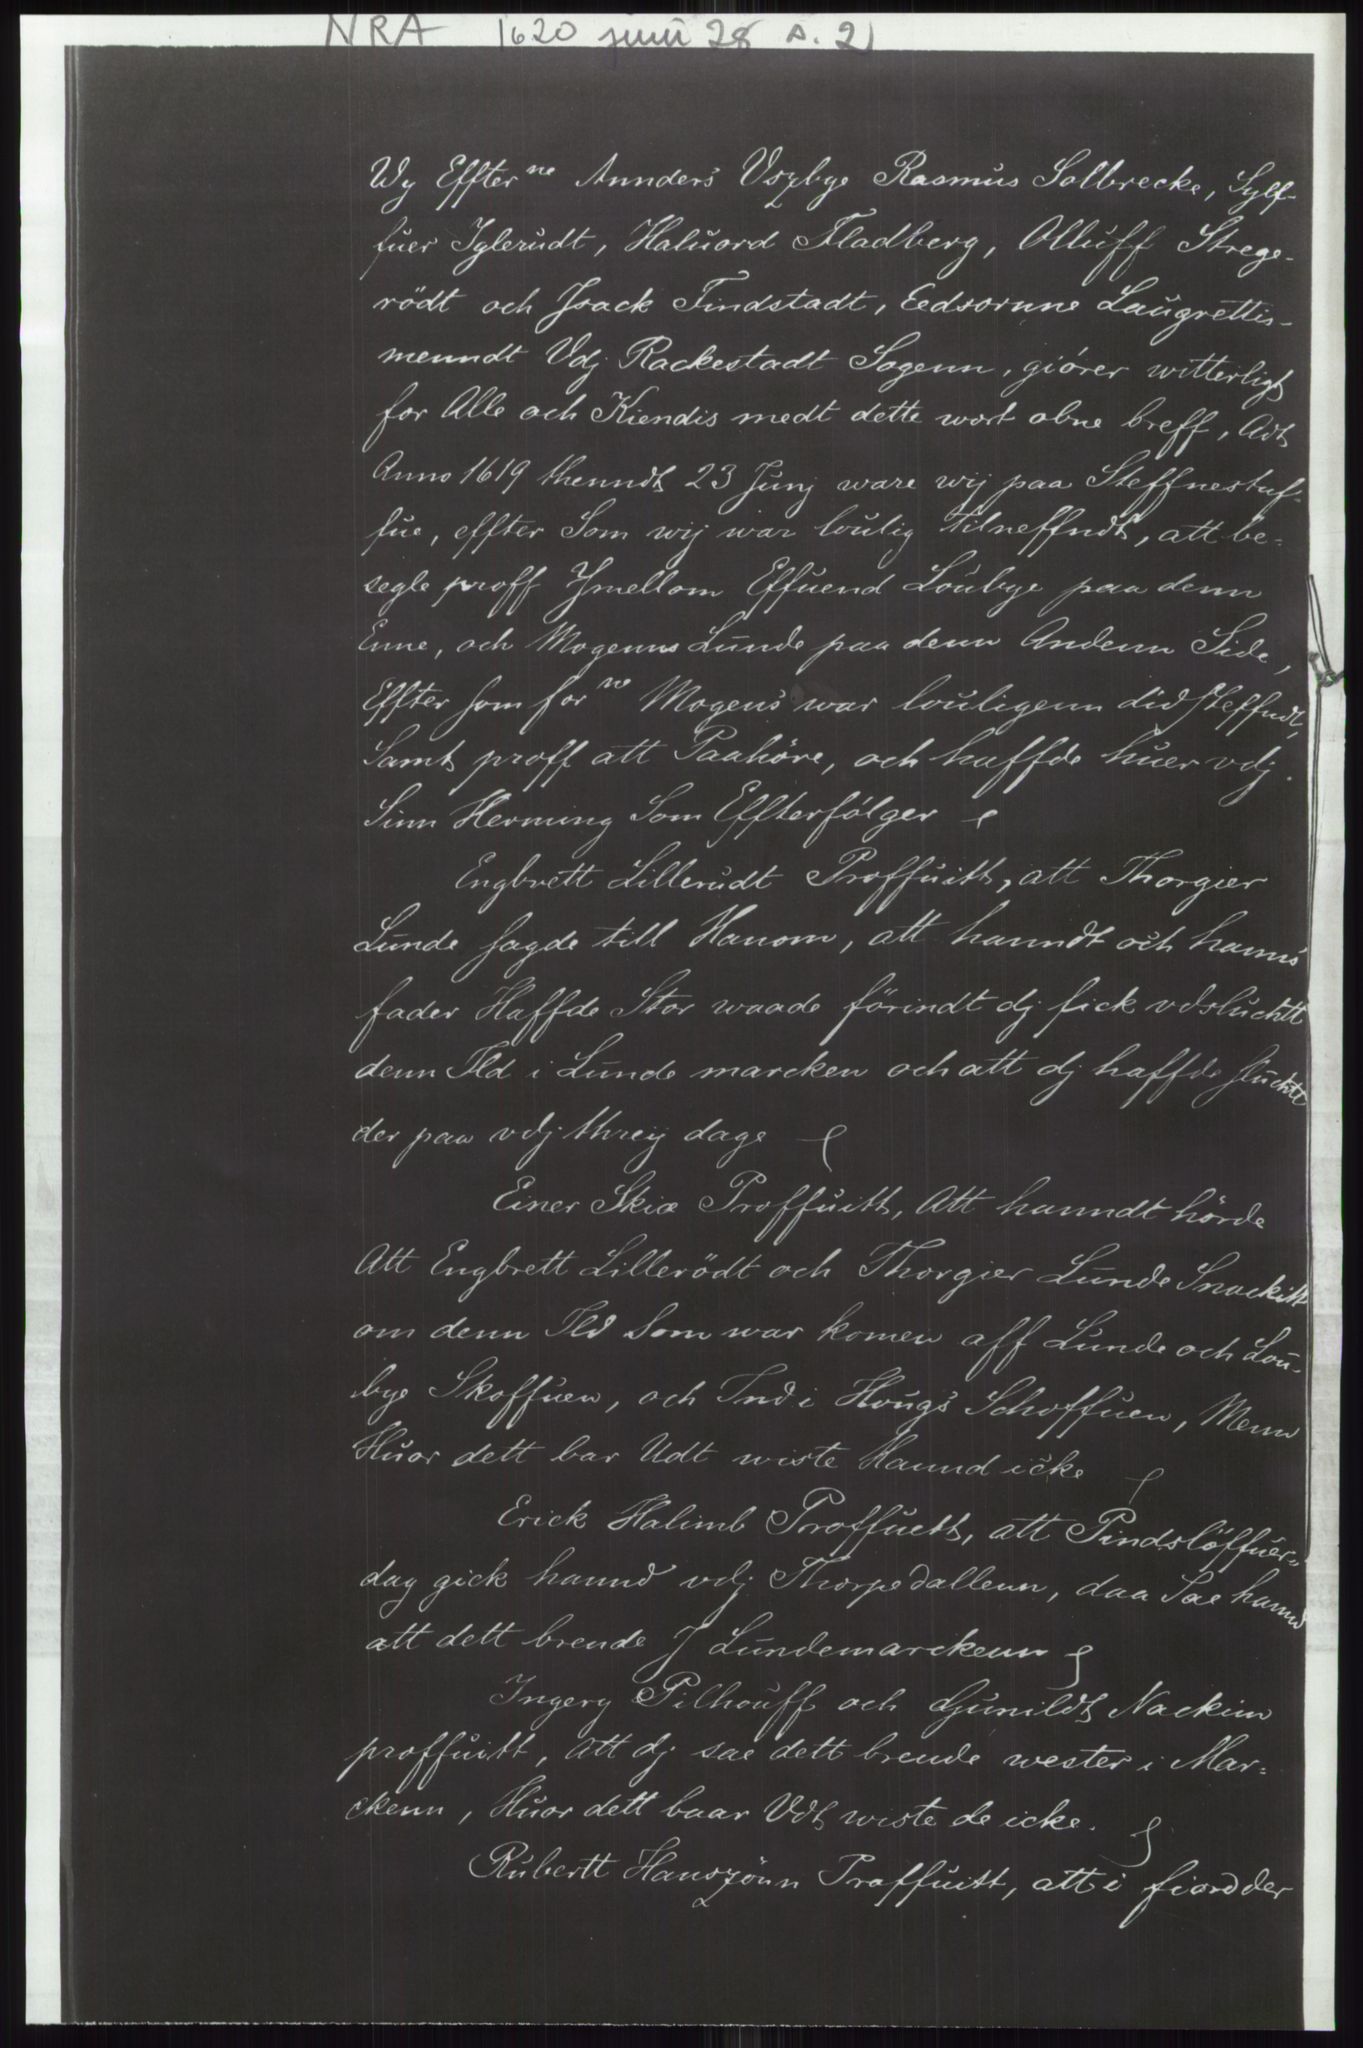 NRA 1620 juni 28 s. 2)
Wy Effter ne Annders Vszbye Rasmus Solbrecke, Sylf-
fuer Jglerudt, Haluord Fladberg, Olluff Strege-
rödt och Jsack Findstadt, Eedsornne Laugrettis-
menndt Vdj Rackestadt Sogenn, giörer witterligt
for Alle och Kiendis medt dette wort obne breff, Adt
Anno 1619 thenndt 23 Junj ware wij paa Steffnestuf-
fue, effter Som wij war loulig tilneffndt, att be-
segle proff Jmellom Effuend Loubye paa denn
Enne, och Mogenns Lunde paa denn Andenn Side,
Effter som for ne Mogens war louligenn did steffndt,
Samt proff att Paahöre, och haffde huer vdj.
Sinn Herming Som Effterfölger
Engbrett Lillerudt Proffuitt, att Thorgier
Lunde sagde till Hanom, att hanndt och hanns
fader Haffde Stor waade förindt dj fick vdsluchtt
denn Ild i Lunde marcken och att dj haffde sluchtt
der paa vdj threij dage
Einer Skie Proffuitt, Att hanndt hörde
Att Engbrett Lillerödt och Thorgier Lunde Snackitt
om denn Ild Som war komen aff Lunde och Lou-
bye Skoffuen, och Ind i Hougs Schoffuen, Menn
Huor dett bar Udt wiste Hannd icke
Erick Halimb Proffuett, att Pindslöffuer-
dag gick hannd vdj Thorpedallenn, daa Sae hannd
att dett brende J Lundemarckenn
Ingery Pilhouff och Gunildt Nackim
proffuitt, Att dj sae dett brende wester i Mar-
ckenn, Huor dett baar Vdt wiste de icke.
Rubertt Hanszönn Proffuitt, att i fiord der